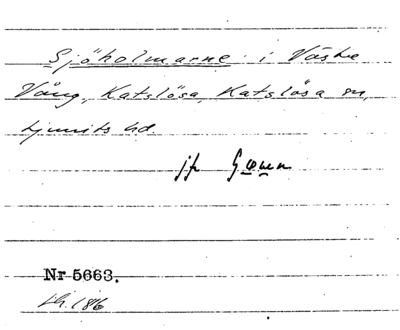 Sjöholmarne i Västra
Väng, Katslösa, Katslösa sn,
Ljunits hd.
jfr
Nr 5663.
186